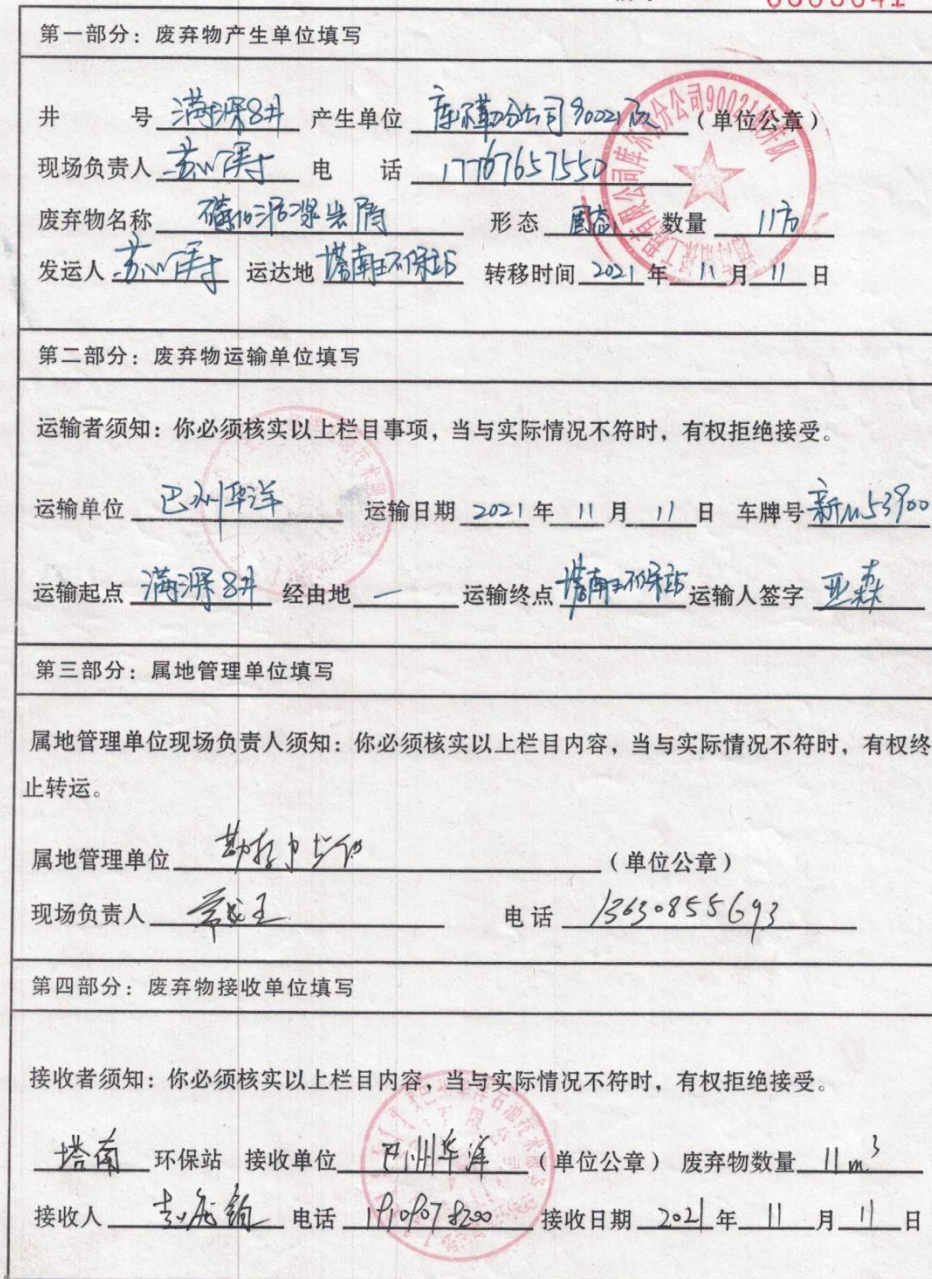 第一部分：废弃物产生单位填写
井 号 满深8井 产生单位 库尔勒分公司90021队 （单位公章）
现场负责人 电 话 17767657550
废弃物名称 磺化泥浆岩屑 形态 固态 数量 11方
发运人 运达地 塔南环保站 转移时间 2021 年 11 月 11 日
第二部分：废弃物运输单位填写
运输者须知：你必须核实以上栏目事项，当与实际情况不符时，有权拒绝接受。
运输单位 巴州华洋 运输日期 2021 年 11 月 11 日 车牌号 新M53900
运输起点 满深8井 经由地 — 运输终点 塔南环保站 运输人签字 亚森
第三部分：属地管理单位填写
属地管理单位现场负责人须知：你必须核实以上栏目内容，当与实际情况不符时，有权终
止转运。
属地管理单位 （单位公章）
现场负责人 电话 13630855693
第四部分：废弃物接收单位填写
接收者须知：你必须核实以上栏目内容，当与实际情况不符时，有权拒绝接受。
塔南 环保站 接收单位 巴州华洋 （单位公章） 废弃物数量 11m³
接收人 电话 19109078200 接收日期 2021 年 11 月 11 日